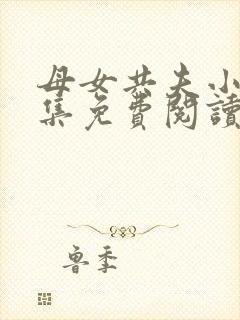 母女共夫小
集免费阅读
鲁季